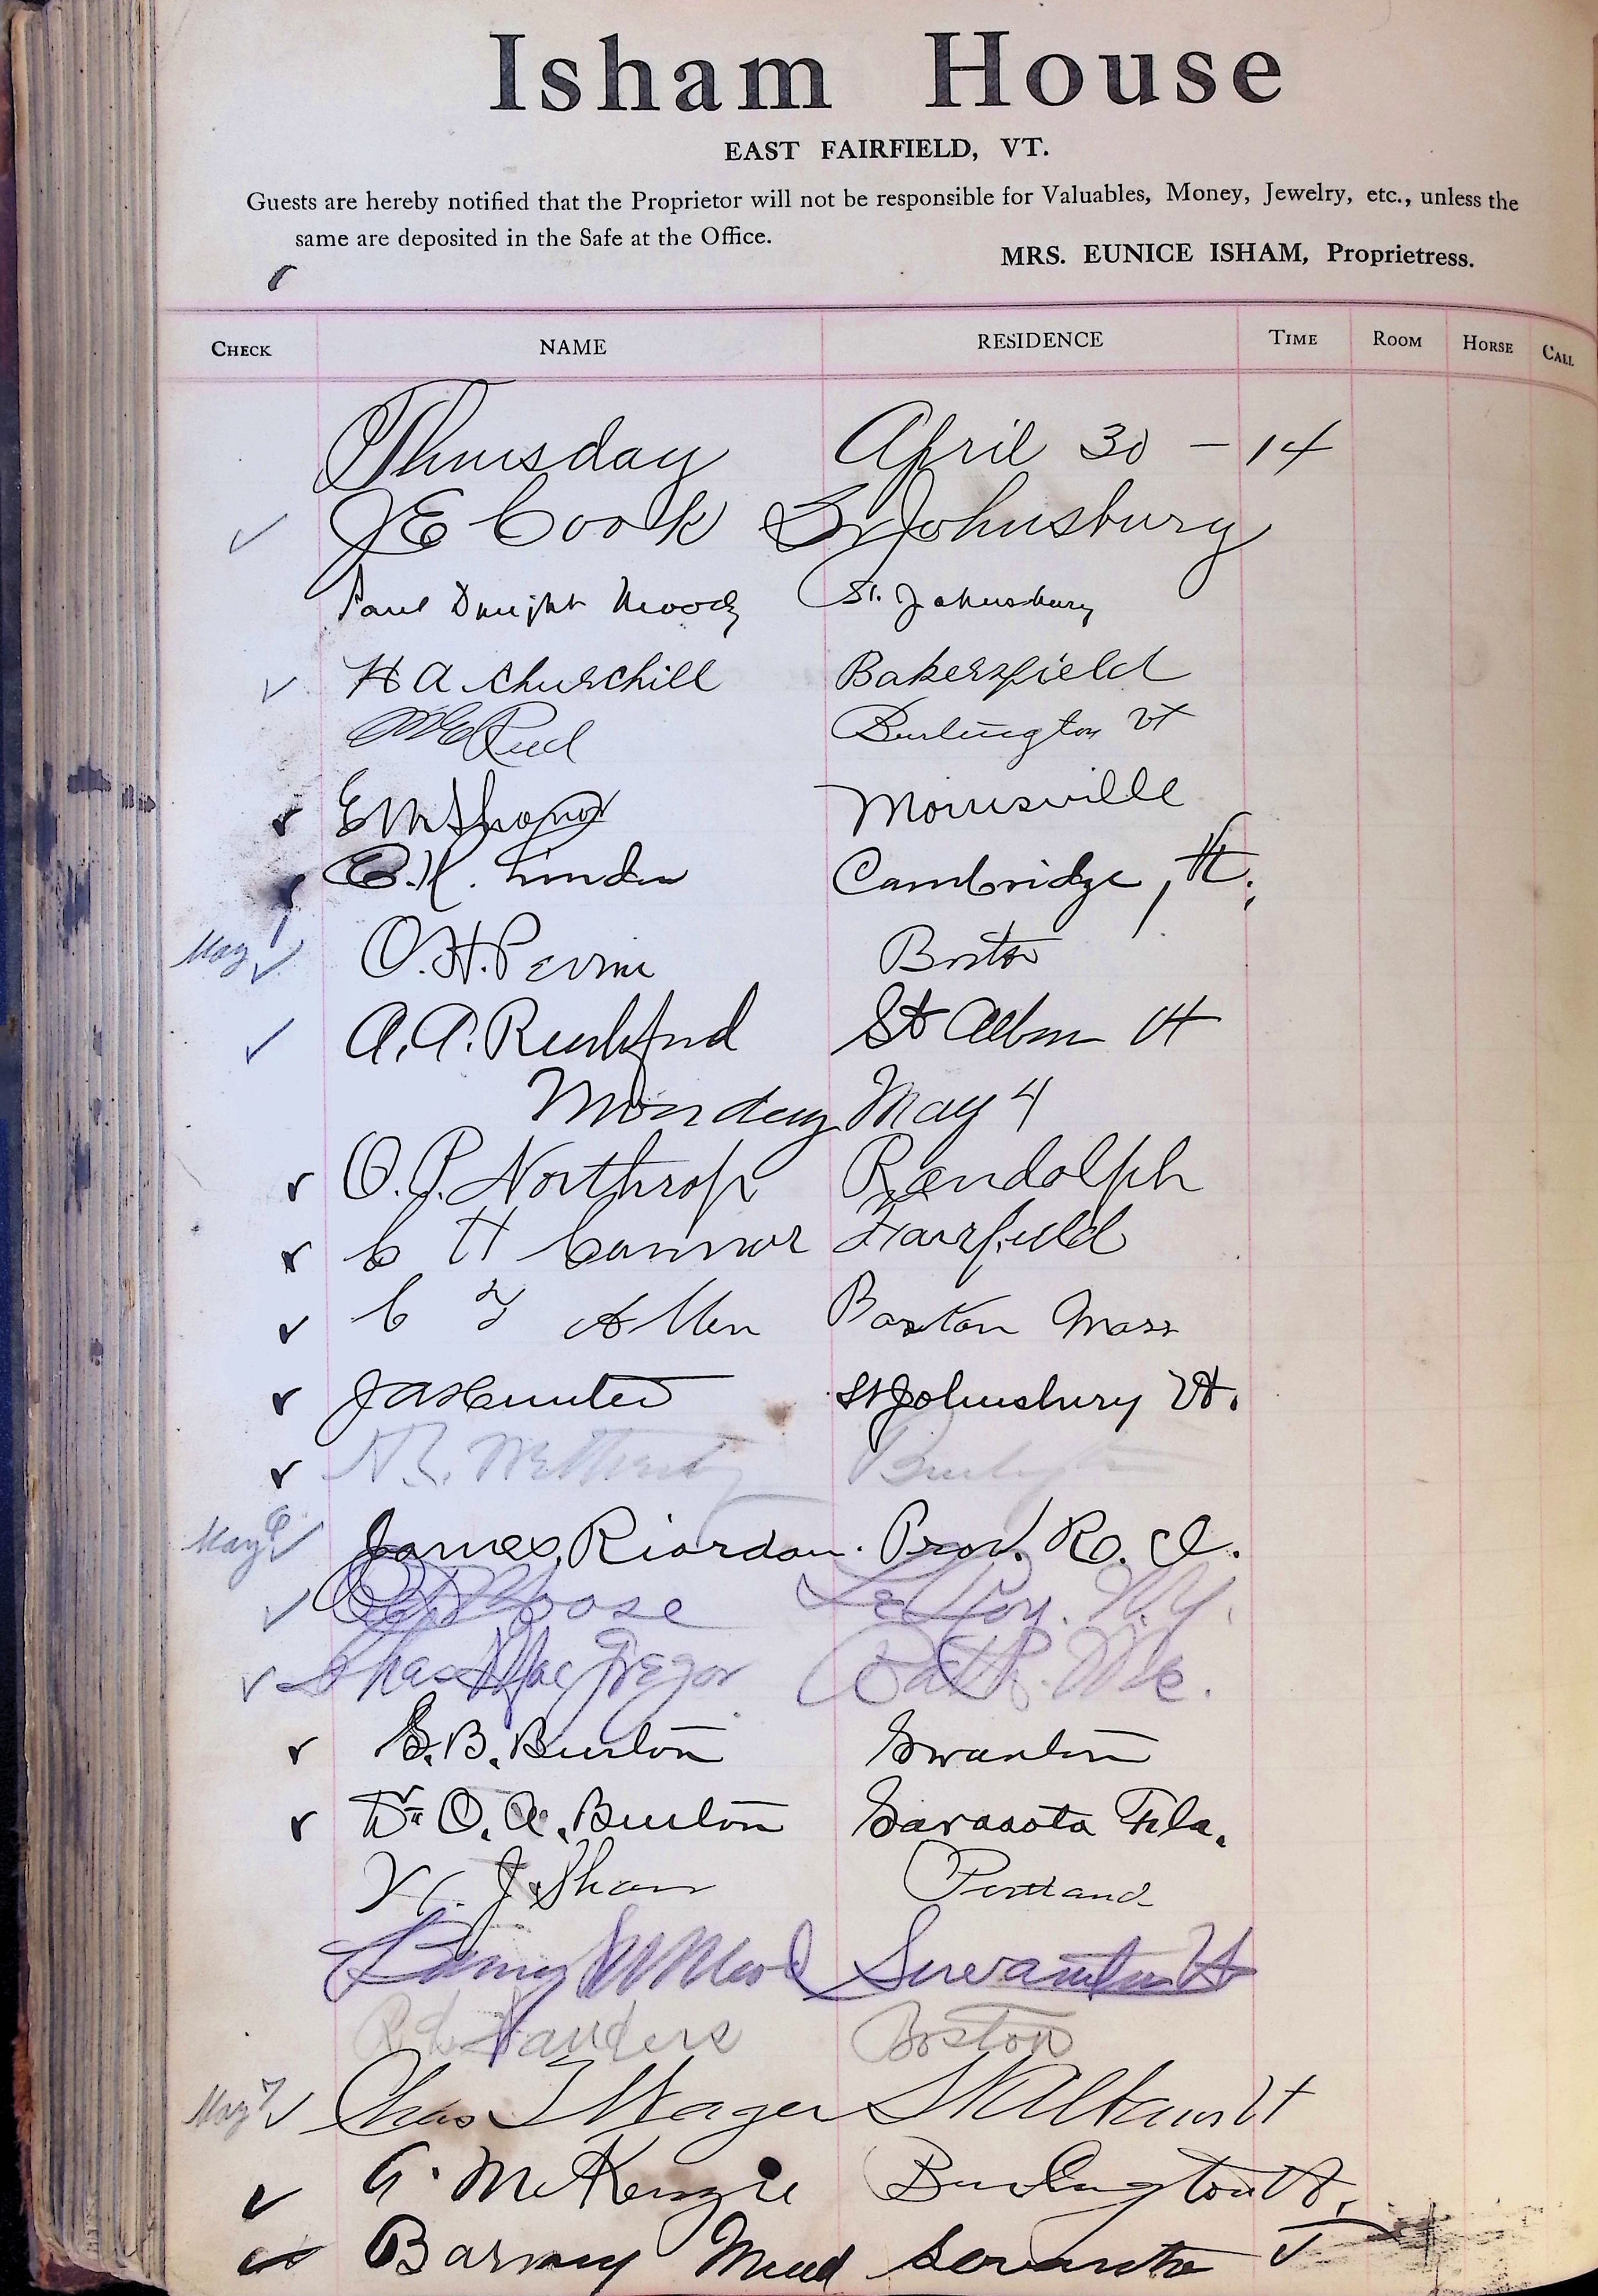 Isham House
EAST FAIRFIELD, VT.
Guests are hereby notified that the Proprietor will not be responsible for Valuables, Money, Jewelry, etc., unless the
same are deposited in the Safe at the Office.
MRS. EUNICE ISHAM, Proprietress.
CHECK NAME RESIDENCE TIME ROOM HORSE CALL
Thursday April 30 - 14
J E Cook St Johnsbury
Paul Dwight Moody St. Johnsbury
H A Churchill Bakersfield
Burlington Vt
E M Morrisville
Cambridge, Vt.
May O. H. Perrine Boston
A. A. Rushford St Albans Vt
Monday May 4
O. P. Northrop Randolph
C H Connor Fairfield
C F Allen Boston Mass
J A Hunter St Johnsbury Vt.
N. Burlington
May 6 James Riordan. Prov. R. I.
Le Roy. N.Y.
Chas MacGregor Bath. Me.
G. B. Burton Swanton
Dr. O. A. Burton Sarasota Fla.
J Shaw Portland
Swanton Vt
Sanders Boston
May 7 Chas Hager St Albans Vt
G. McKenzie Burlington Vt.
Barney Swanton